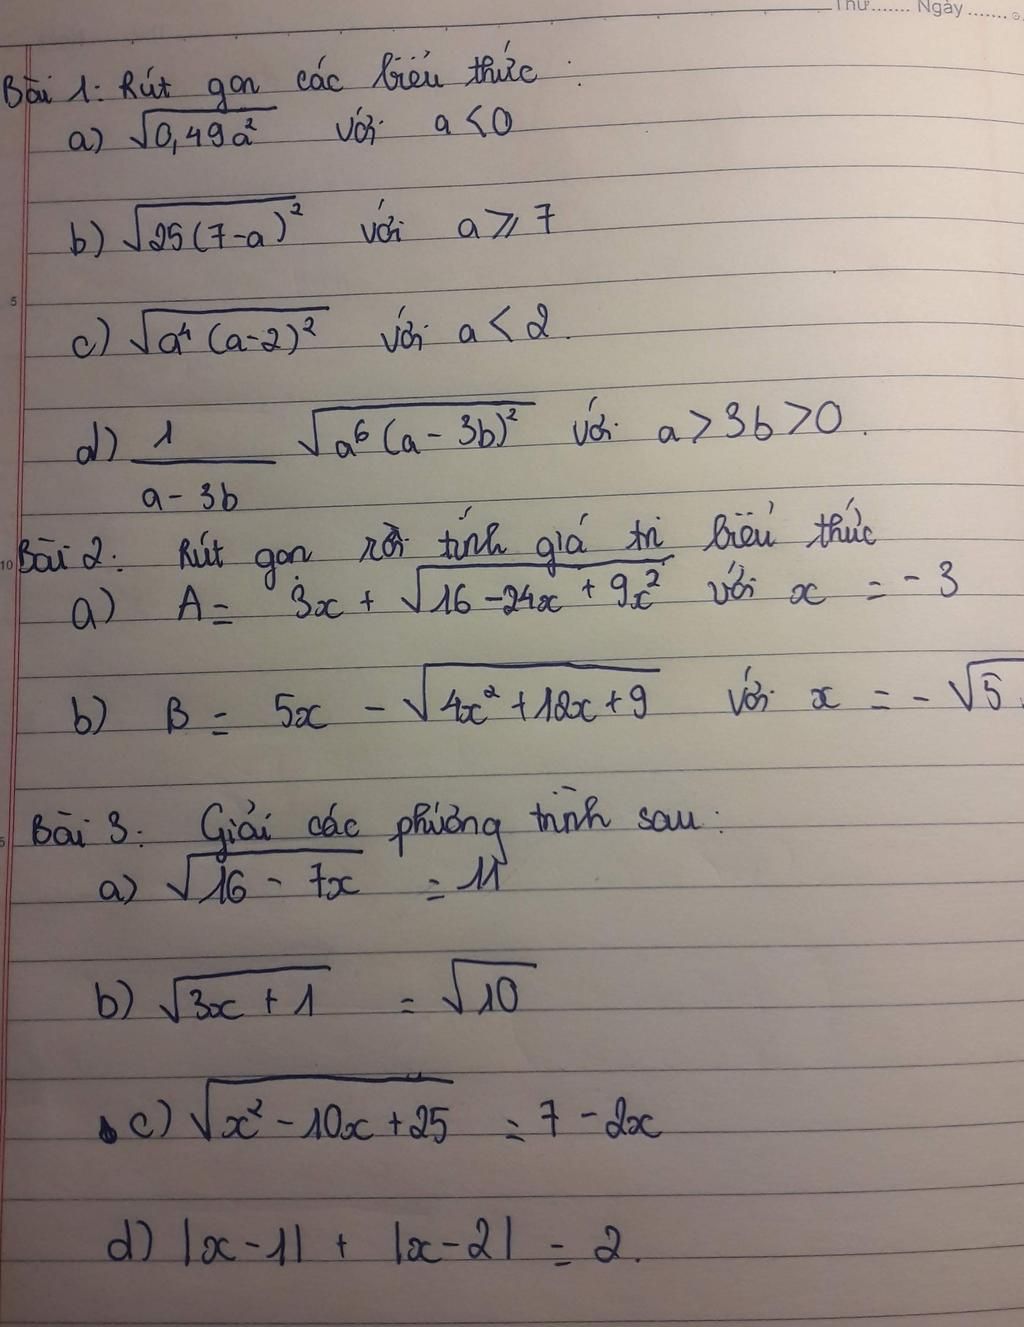 Thứ....... Ngày.......
Bài 1: Rút gọn các biểu thức :
a) √0,49a² với a < 0
b) √25(7-a)² với a ⩾ 7
5
c) √a⁴ (a-2)² với a < 2.
d) 1/(a-3b) √a⁶ (a - 3b)² với a > 3b > 0.
10 Bài 2: Rút gọn rồi tính giá trị biểu thức
a) A = 3x + √16 - 24x + 9x² với x = - 3
b) B = 5x - √4x² + 12x + 9 với x = - √5.
5 Bài 3: Giải các phương trình sau:
a) √16 - 7x = 11
b) √3x + 1 = √10
c) √x² - 10x + 25 = 7 - 2x
d) |x - 1| + |x - 2| = 2.